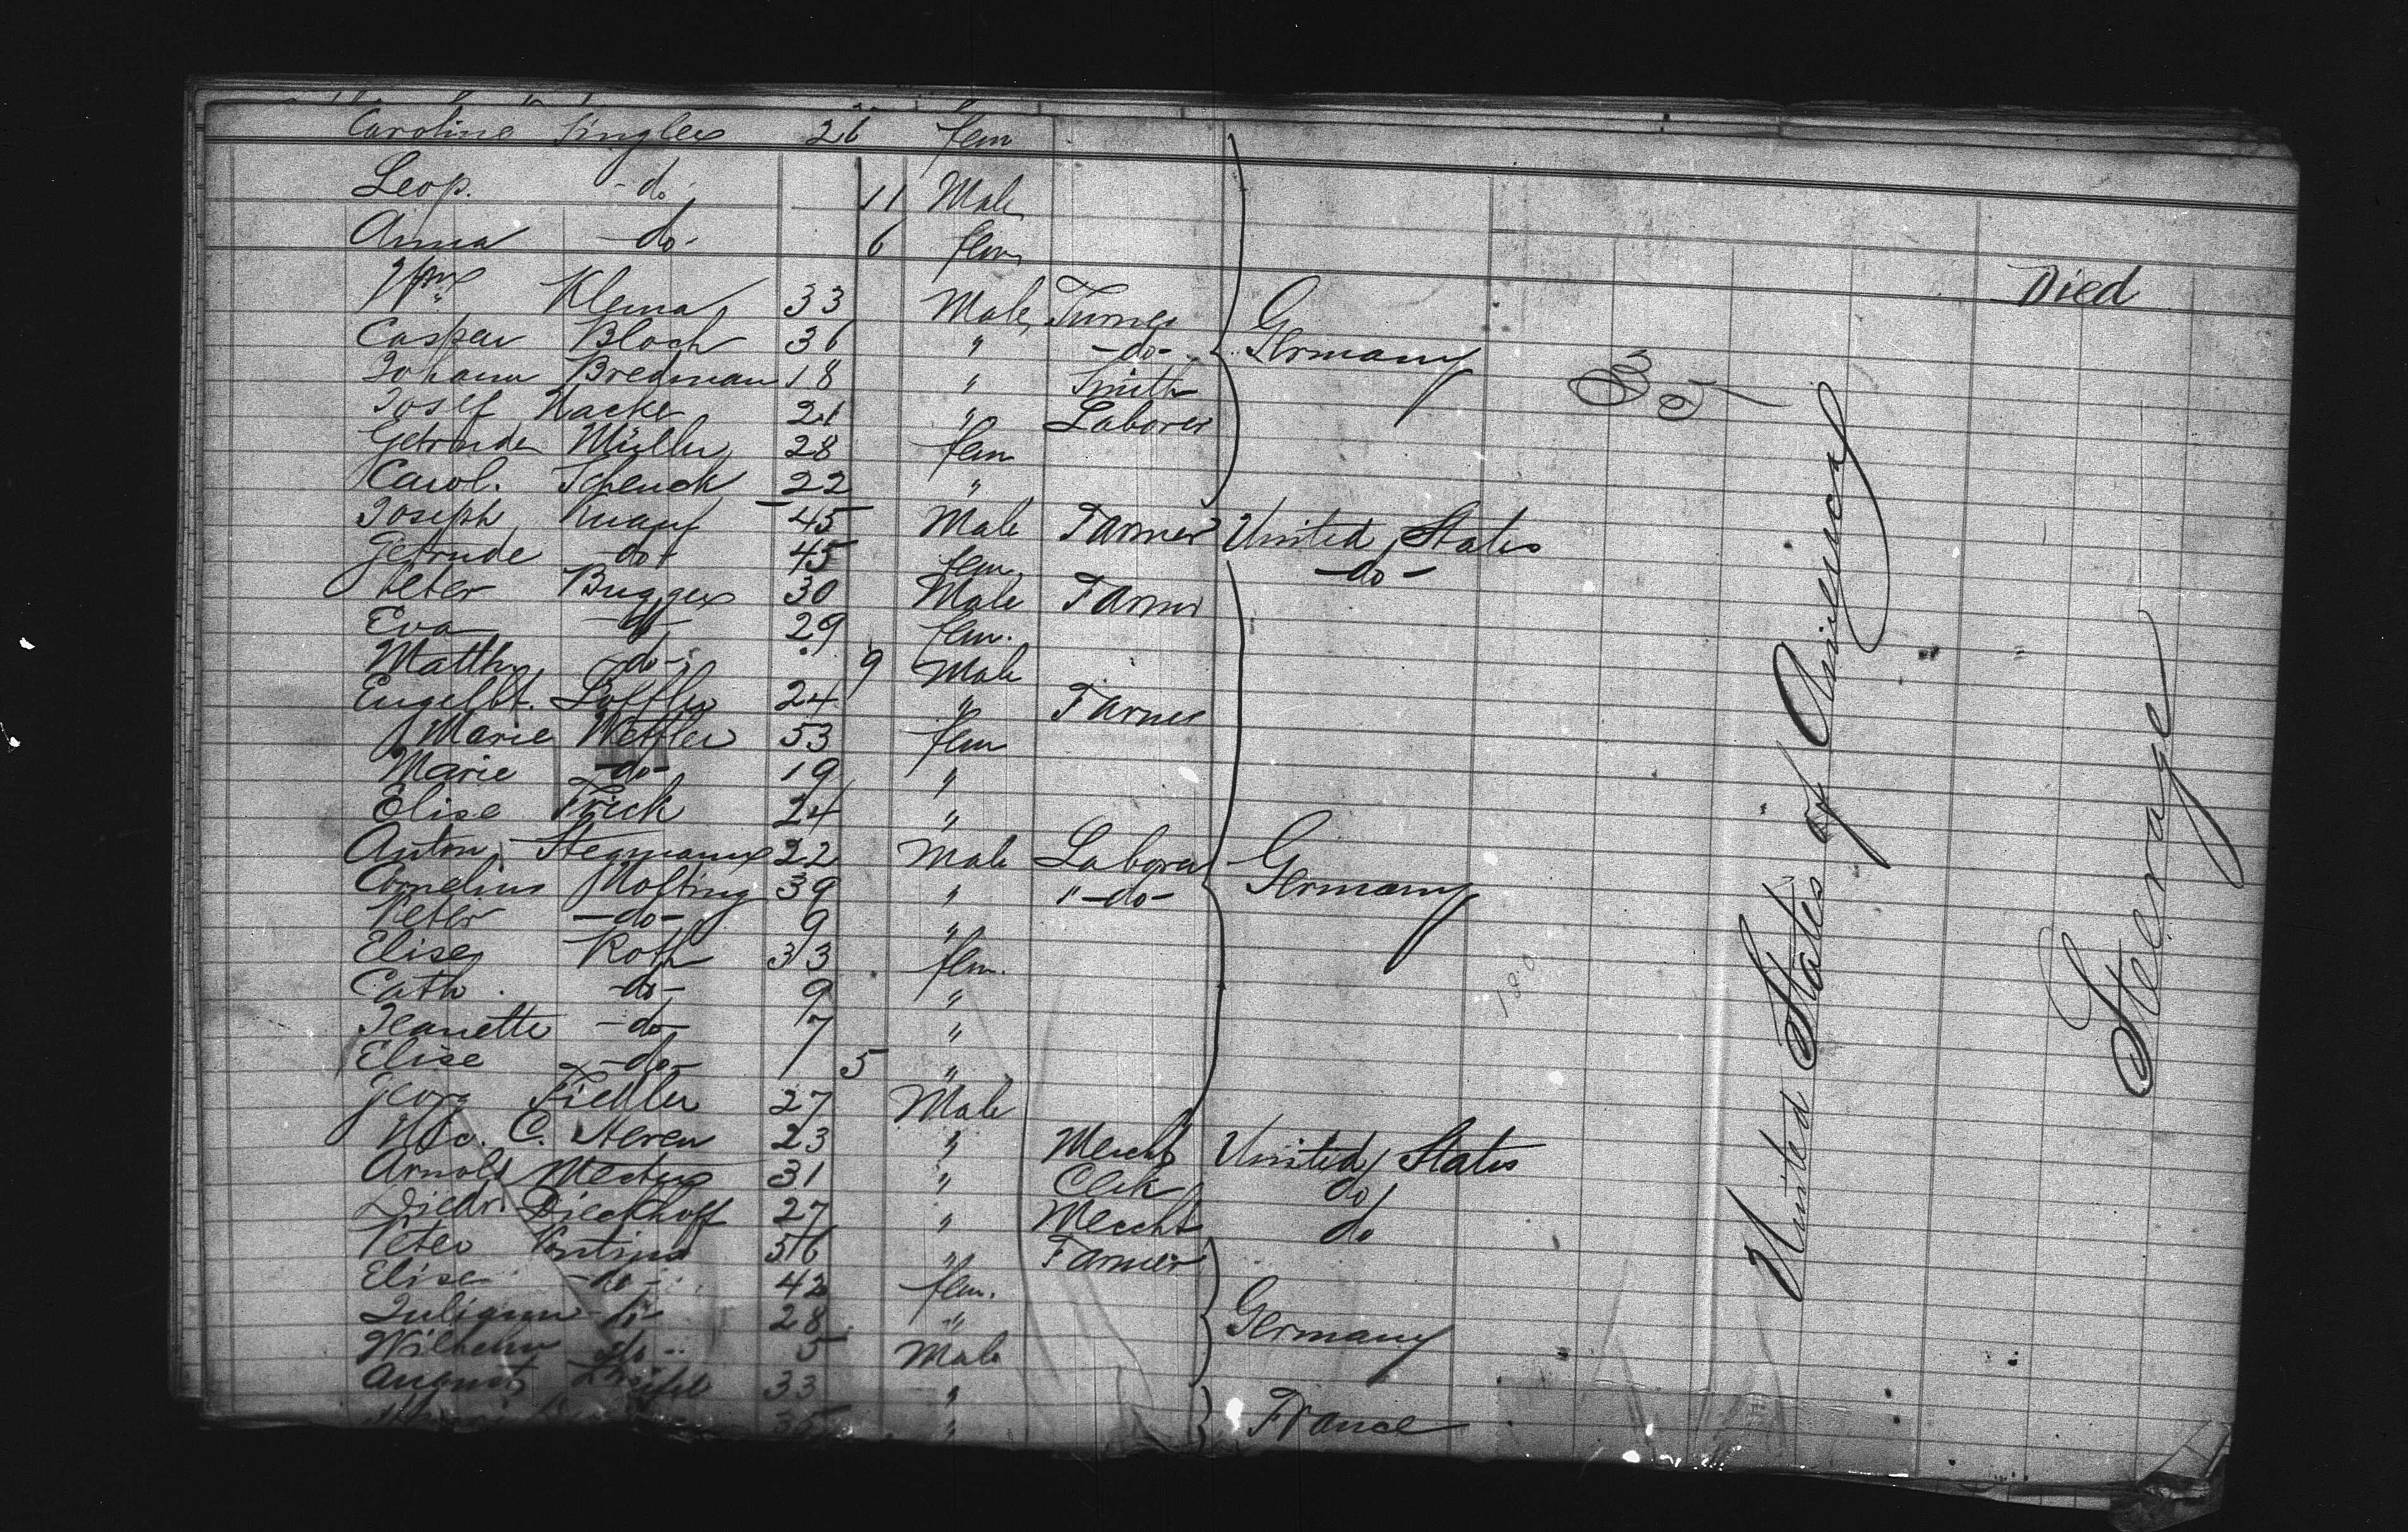 Caroline Singler 26 fem
Leop. -do- 11 Male
Anna -do- 6 fem
Died
Wm Klema 33 Male Turner
Caspar Bloch 36 " -do- Germany
Johann Bredman 18 " Smith
Josef Hacke 21 " Laborer
Getrude Müller 28 fem
Carol. Schenck 22 "
Joseph Knauf 45 Male Farmer United States
Getrude -do- 45 fem -do-
Peter Bugger 30 Male Farmer
Eva -do- 29 fem.
Matth -do- 9 Male
Engelbt. Löffler 24 " Farmer
Marie Wettler 53 fem
Marie -do- 19 "
Elise Frick 24 "
Anton Stegmann 22 Male Laborer Germany
Cornelius Molting 39 " "-do-
Peter -do- 9 "
Elise Roth 33 fem.
Cath -do- 9 "
Jeanette -do- 7 "
Elise -do- 5 "
Georg Fiedler 27 Male
C. Steren 23 " Mercht United States
Arnold Mertens 31 " Clerk do
Diedr. Dieckhoff 27 " Mercht do
Peter 56 " Farmer
Elise -do- 42 fem.
Juliann -do- 28 " Germany
Wilhelm -do- 5 Male
August 33 "
35 " France
United States of America
Steerage